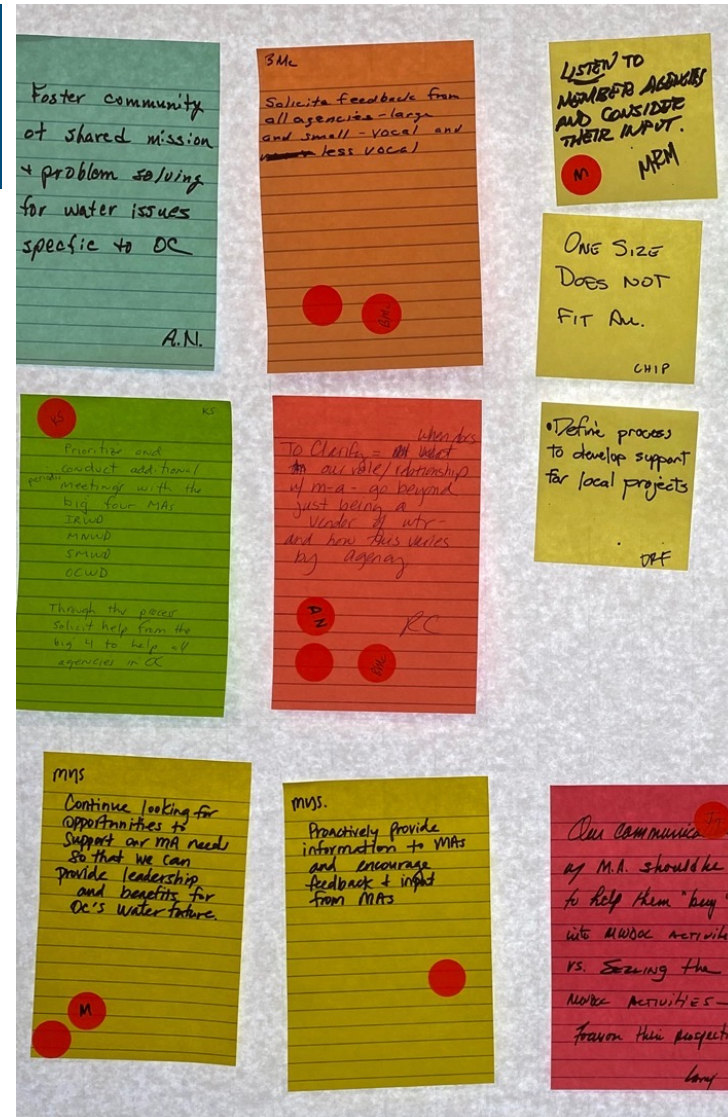 Foster community
of shared mission
+ problem solving
for water issues
specfic to OC
A.N.
BMc
Solicite feedback from
all agencies - large
and small - vocal and
less vocal
BM.
LISTEN TO
MEMBER AGENCIES
AND CONSIDER
THEIR INPUT.
M
MRM
ONE SIZE
DOES NOT
FIT ALL.
CHIP
KS
KS
Prioritize and
conduct additional
periodic meetings with the
big four MAs
IRWD
MNWD
SMWD
OCWD
Through the process
solicit help from the
big 4 to help all
agencies in OC
when does
To Clarify =
our role/relationship
w/ m-a - go beyond
just being a
vender of wtr -
and how this varies
by agency
AN
RC
BMc
• Define process
to develop support
for local projects
DRF
MYS
Continue looking for
opportunities to
support our MA need
so that we can
provide leadership
and benefits for
OC's water future.
M
MYS.
Proactively provide
information to MAs
and encourage
feedback + input
from MAs
Our communica
w/ M.A. should be
to help them "buy"
into MWDOC activitie
vs. Selling the
MWDOC ACTIVITIES -
Focus on their
Larry